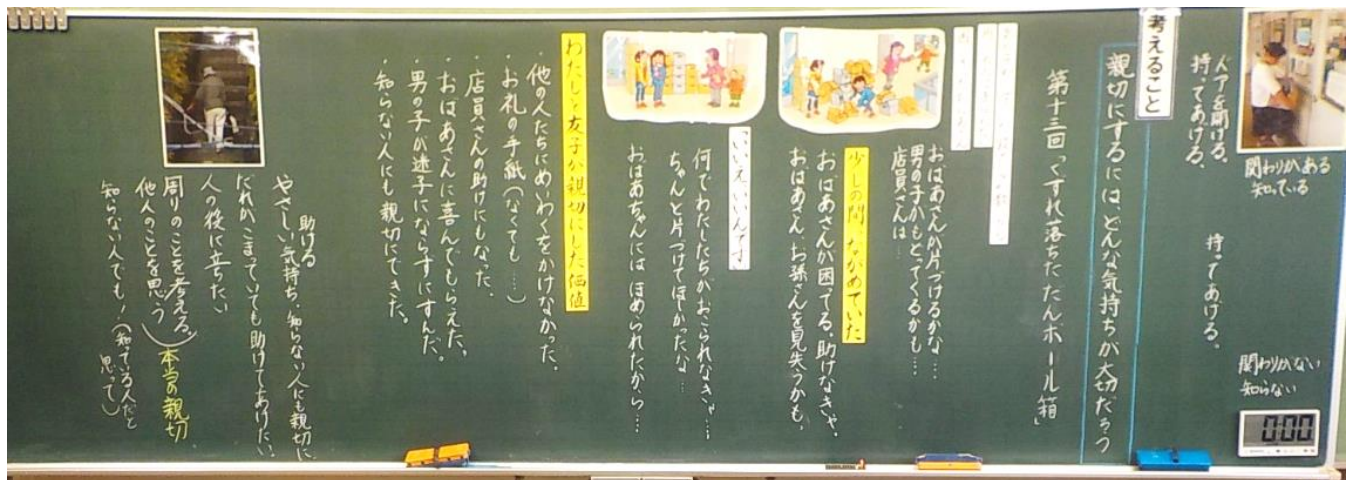 ドアを開ける。
持ってあげる。
関わりがある
知っている
持ってあげる。
関わりがない
知らない
0:00
考えること
親切にするには、どんな気持ちが大切だろう
第十三回「くずれ落ちただんボール箱」
おばあさんが片づけるかな…
男の子がもどってくるかも…
店員さんは…
少しの間、ながめていた
おばあさんが困ってる。助けなきゃ。
おばあさん、お孫さんを見失うかも。
「いいえ、いいんです」
何でわたしたちがおこられなきゃ…
ちゃんと片づけてほしかったな…
おばあちゃんには ほめられたから…
わたしと友子が親切にした価値
・他の人たちにめいわくをかけなかった。
・お礼の手紙(なくても……)
・店員さんの助けにもなった。
・おばあさんに喜んでもらえた。
・男の子が迷子にならずにすんだ。
・知らない人にも親切にできた。
助ける
やさしい気持ち・知らない人にも親切に
だれがこまっていても助けてあげたい
人の役に立ちたい
周りのことを考える。
他人のことを思う
本当の親切
知らない人でも!(知っている人だと
思って)